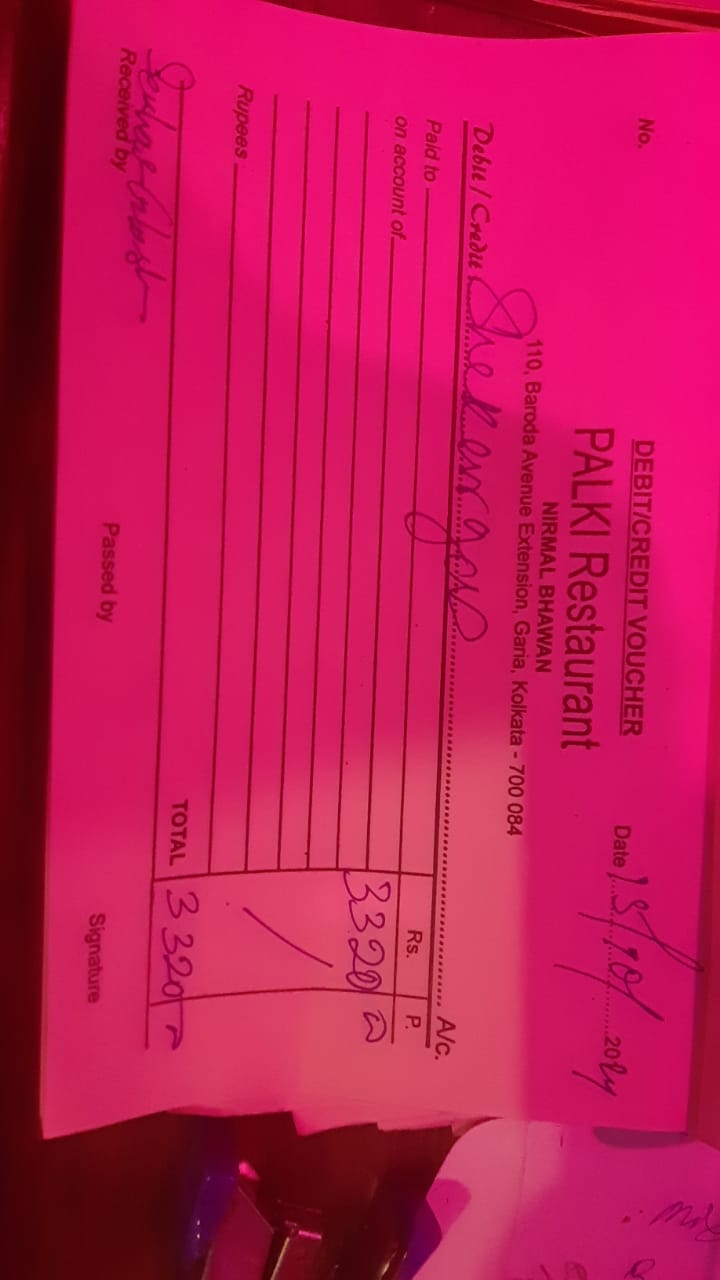 DEBIT/CREDIT VOUCHER
No.
Date 15/10/ 2024
PALKI Restaurant
NIRMAL BHAWAN
110, Baroda Avenue Extension, Garia, Kolkata - 700 084
Debit / Credit A/c.
Paid to
on account of
Rs. P.
3320
Rupees
TOTAL 3320
Received by
Passed by
Signature